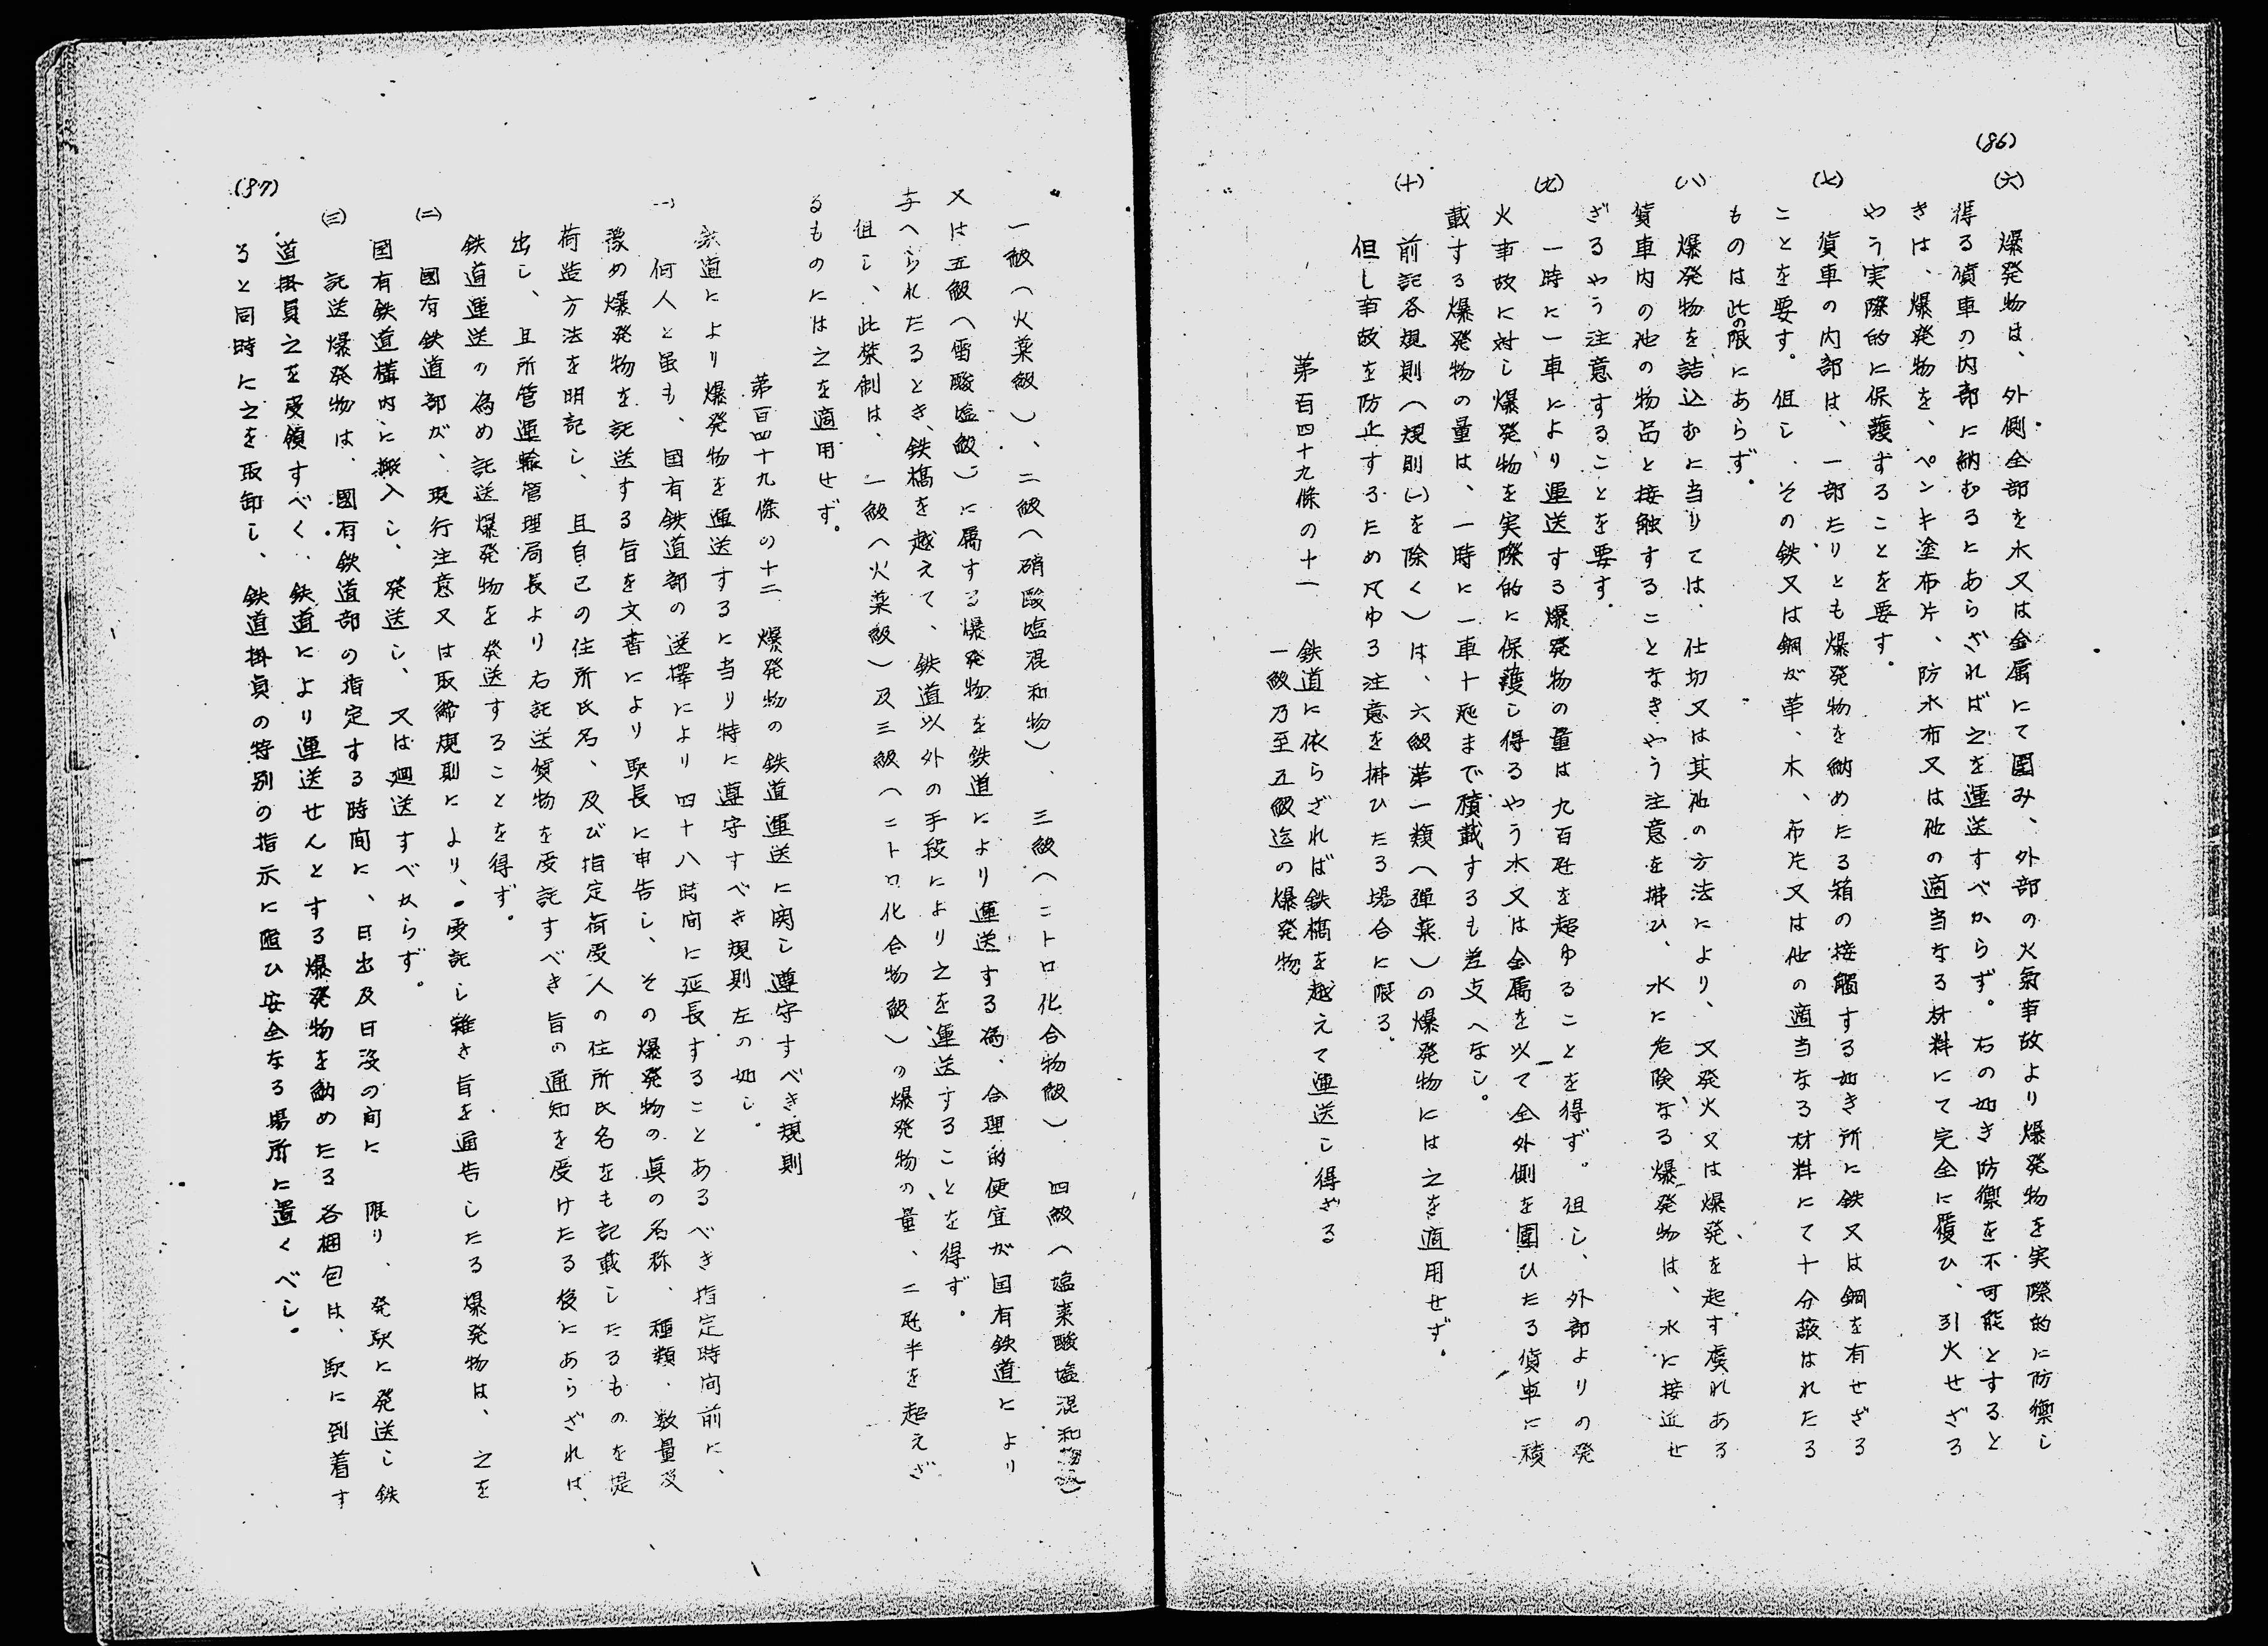 (86)
(六) 爆発物は、外側全部を木又は金属にて囲み、外部の火氣事故より爆発物を実際的に防禦し
得る貨車の内部に納むるにあらざれば之を運送すべからず。右の如き防禦を不可能とすると
きは、爆発物を、ペンキ塗布片、防水布又は他の適当なる材料にて完全に覆ひ、引火せざる
やう実際的に保護することを要す。
(七) 貨車の内部は、一部たりとも爆発物を納めたる箱の接觸する如き所に鉄又は鋼を有せざる
ことを要す。但し、その鉄又は鋼が革、木、布片又は他の適当なる材料にて十分蔽はれたる
ものは此の限にあらず。
(八) 爆発物を詰込むに当りては、仕切又は其他の方法により、又発火又は爆発を起す虞れある
貨車内の他の物品と接触することなきやう注意を拂ひ、水に危険なる爆発物は、水に接近せ
ざるやう注意することを要す。
(九) 一時に一車により運送する爆発物の量は九百瓩を超ゆることを得ず。但し、外部よりの発
火事故に対し爆発物を実際的に保護し得るやう木又は金属を以て全外側を圍ひたる貨車に積
載する爆発物の量は、一時に一車十瓲まで積載するも差支へなし。
(十) 前記各規則(規則(一)を除く)は、六級第一類(弾薬)の爆発物には之を適用せず。
但し事故を防止するため凡ゆる注意を拂ひたる場合に限る。
第百四十九條の十一 鉄道に依らざれば鉄橋を越えて運送し得ざる
一級乃至五級迄の爆発物
一級(火薬級)、二級(硝酸塩混和物)、三級(ニトロ化合物級)、四級(塩素酸塩混和物級)
又は五級(雷酸塩級)に属する爆発物を鉄道により運送する為、合理的便宜が国有鉄道により
与へられたるとき、鉄橋を越えて、鉄道以外の手段により之を運送することを得ず。
但し、此禁制は、一級(火薬級)及三級(ニトロ化合物級)の爆発物の量、二瓩半を超えざ
るものには之を適用せず。
第百四十九條の十二 爆発物の鉄道運送に関し遵守すべき規則
鉄道により爆発物を運送するに当り特に遵守すべき規則左の如し。
(一) 何人と虽も、国有鉄道部の送擇により四十八時間に延長することあるべき指定時间前に、
豫め爆発物を託送する旨を文書により駅長に申告し、その爆発物の真の名称、種類、数量及
荷造方法を明記し、且自己の住所氏名、及び指定荷受人の住所氏名をも記載したるものを提
出し、且所管運輸管理局長より右託送貨物を受託すべき旨の通知を受けたる後にあらざれば、
鉄道運送の為め託送爆発物を発送することを得ず。
(二) 國有鉄道部が、現行注意又は取締規則により、受託し難き旨を通告したる爆発物は、之を
国有鉄道構内に搬入し、発送し、又は廻送すべからず。
(三) 託送爆発物は、國有鉄道部の指定する時間に、日出及日没の间に限り、発駅に発送し鉄
道掛員之を受領すべく、鉄道により運送せんとする爆発物を納めたる各梱包は、駅に到着す
ると同時に之を取卸し、鉄道掛員の特別の指示に隨ひ安全なる場所に置くべし。
(87)